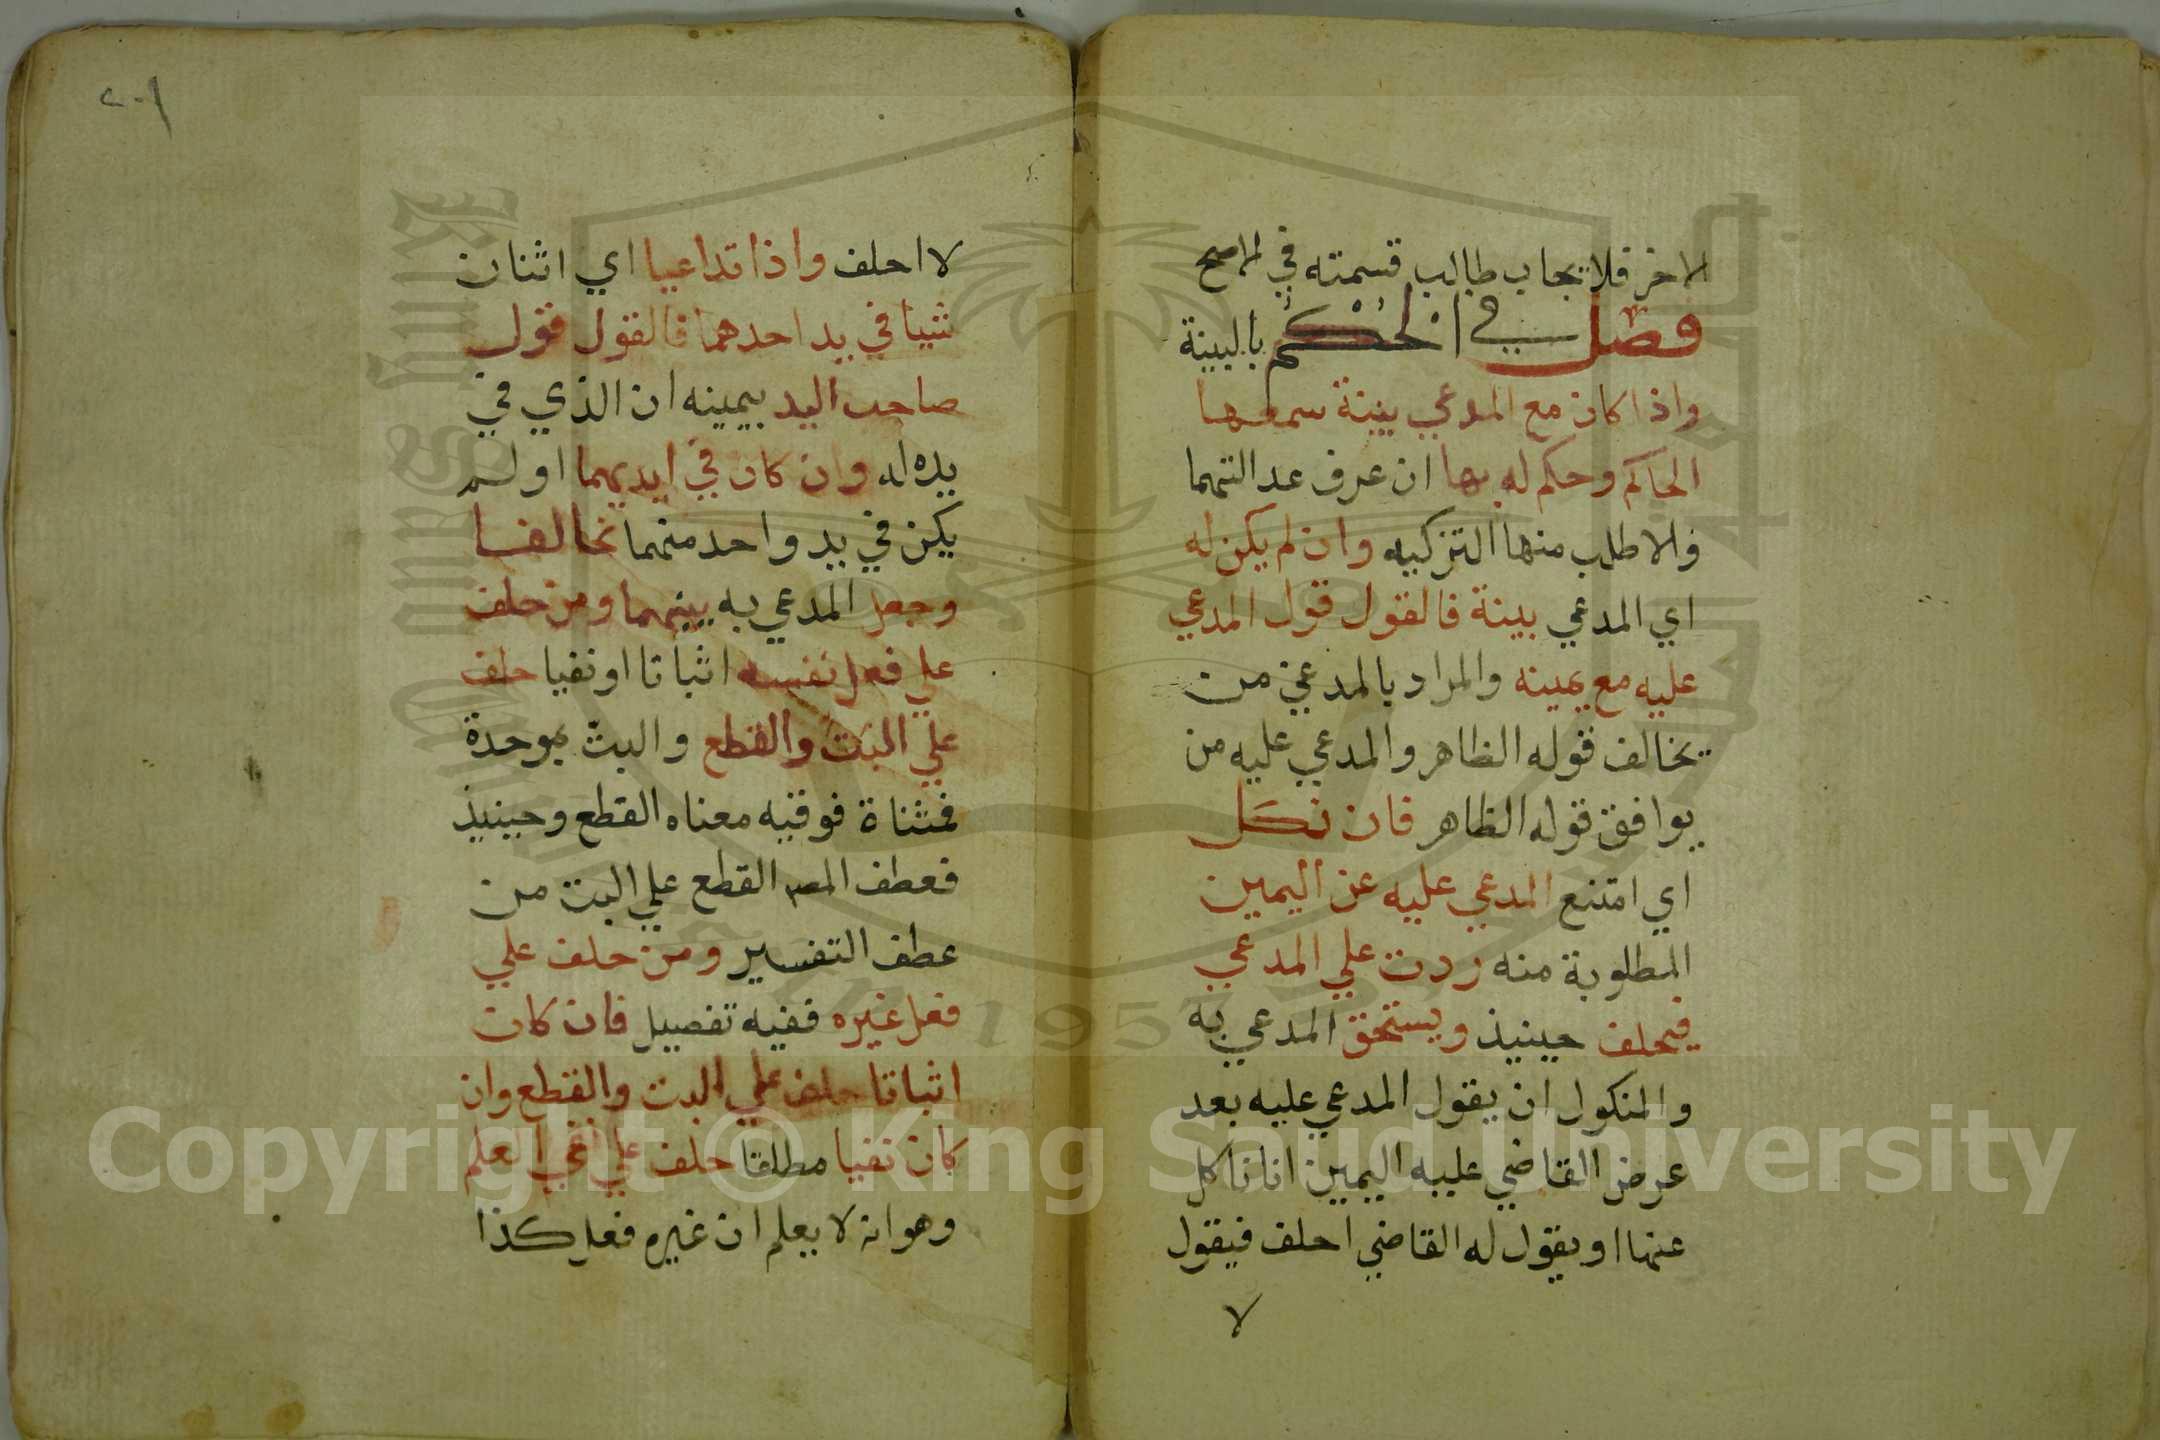 الاخر فلا يجاب طالب قسمته في الاصح
فصل في الحكم بالبينة
واذا كان مع المدعي بينة سمعها
الحاكم وحكم له بها ان عرف عدالتهما
والا طلب منها التزكيه وان لم يكن له
اي المدعي بينة فالقول قول المدعي
عليه مع يمينه والمراد بالمدعي من
يخالف قوله الظاهر والمدعي عليه من
يوافق قوله الظاهر فان نكل
اي امتنع المدعي عليه عن اليمين
المطلوبة منه ردت علي المدعي
فيحلف حينيذ ويستحق المدعي به
والنكول ان يقول المدعي عليه بعد
عرض القاضي عليه اليمين انا ناكل
عنها او يقول له القاضي احلف فيقول
لا
٢٠١
لا احلف واذا تداعيا اي اثنان
شيا في يد احدهما فالقول قول
صاحب اليد بيمينه ان الذي في
يده له وان كان في ايديهما او لم
يكن في يد واحد منهما تحالفا
وجعل المدعي به بينهما ومن حلف
علي فعل نفسه اثباتا او نفيا حلف
علي البت والقطع والبت بموحدة
فمثناة فوقيه معناه القطع وحينيذ
فعطف المص القطع علي البت من
عطف التفسير ومن حلف علي
فعل غيره ففيه تفصيل فان كان
اثباتا حلف علي البت والقطع وان
كان نفيا مطلقا حلف علي نفي العلم
وهو انه لا يعلم ان غيره فعل كذا
Copyright © King Saud University
1957